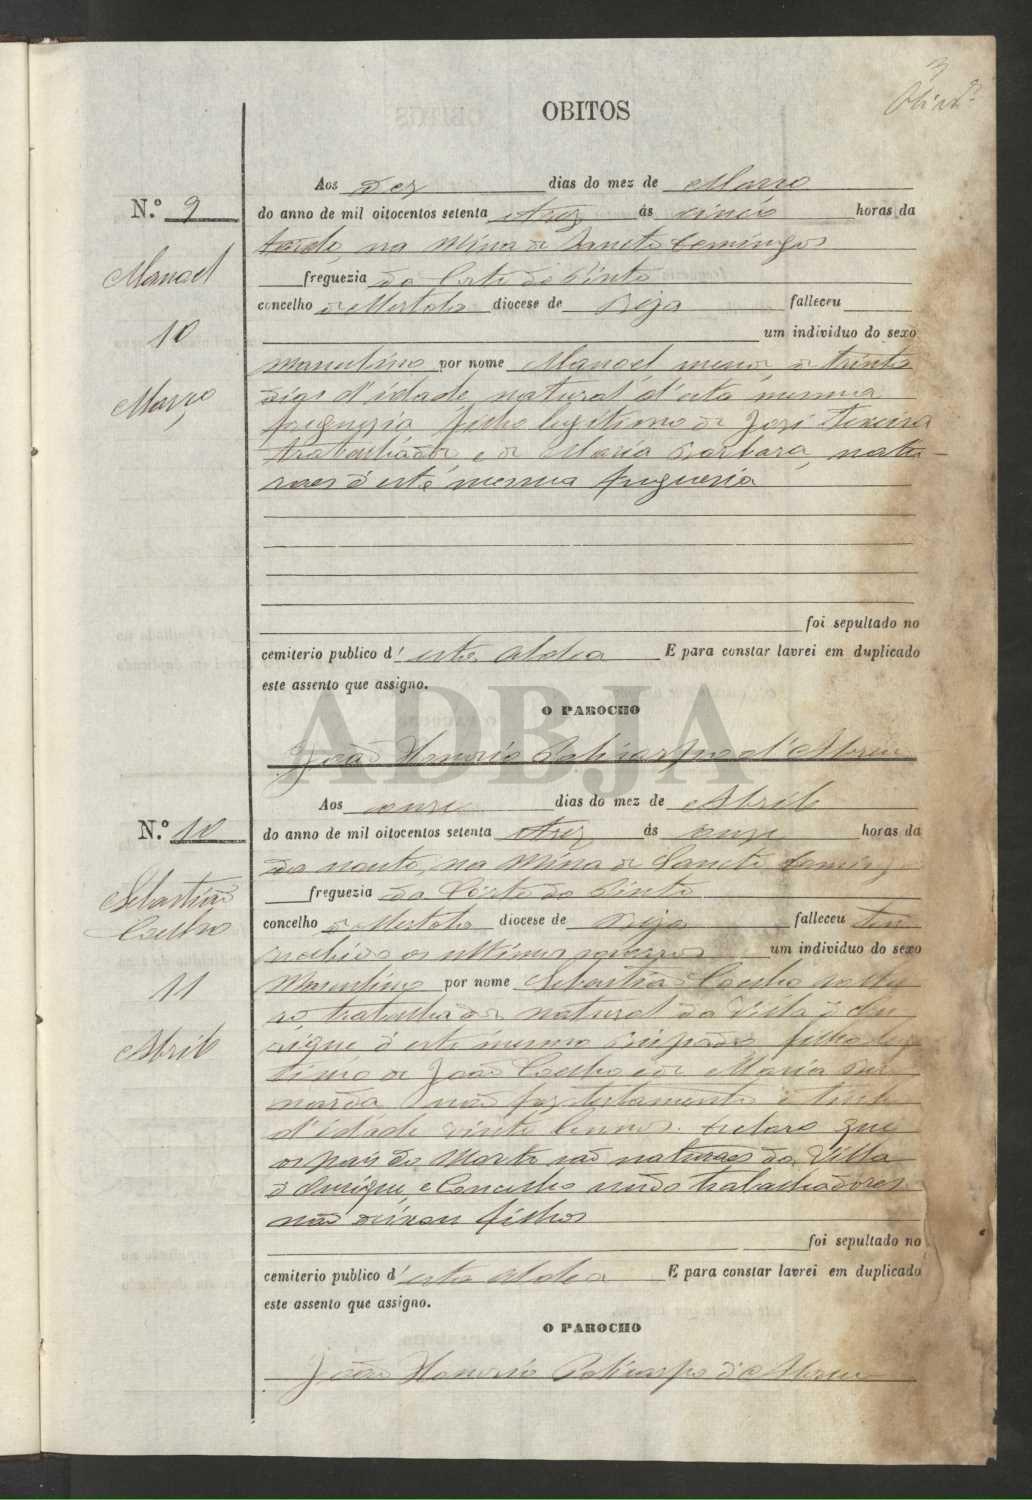 3
OBITOS
Aos dez dias do mez de Março
N.º 9 do anno de mil oitocentos setenta e trez ás cinco horas da
tarde, na Mina de Sancto Domingos
Manoel
freguezia da Corte do Pinto
concelho de Mertola diocese de Beja falleceu
10
um individuo do sexo
masculino por nome Manoel menor de trinta
Março
dias d'idade, natural d'esta mesma
freguezia filho legitimo de José Teixeira
trabalhador e de Maria Barbara, natu-
raes d'esta mesma freguezia
foi sepultado no
cemiterio publico d'esta Aldea E para constar lavrei em duplicado
este assento que assigno.
O PAROCHO
João Honorio Policarpo d'Abreu
ADBJA
Aos onze dias do mez de Abril
N.º 10 do anno de mil oitocentos setenta e trez ás onze horas da
da noute, na Mina de Sancto Doming
Sebastião
freguezia da Corte do Pinto
Coelho
concelho de Mertola diocese de Beja falleceu tendo
recebido os ultimos um individuo do sexo
11
Masculino por nome Sebastião Coelho
trabalhador natural da Villa d'Ou
Abril
rique d'este mesmo Bispado filho legi
timo de João Coelho e de Maria Ber
narda não fez testamento e tinha
d'idade vinte annos. Declaro que
os pais do Morto são naturaes da Villa
d'Ourique, e Concelho sendo trabalhadores
não deixou filhos
foi sepultado no
cemiterio publico d'esta Aldea E para constar lavrei em duplicado
este assento que assigno.
O PAROCHO
João Honorio Policarpo d'Abreu